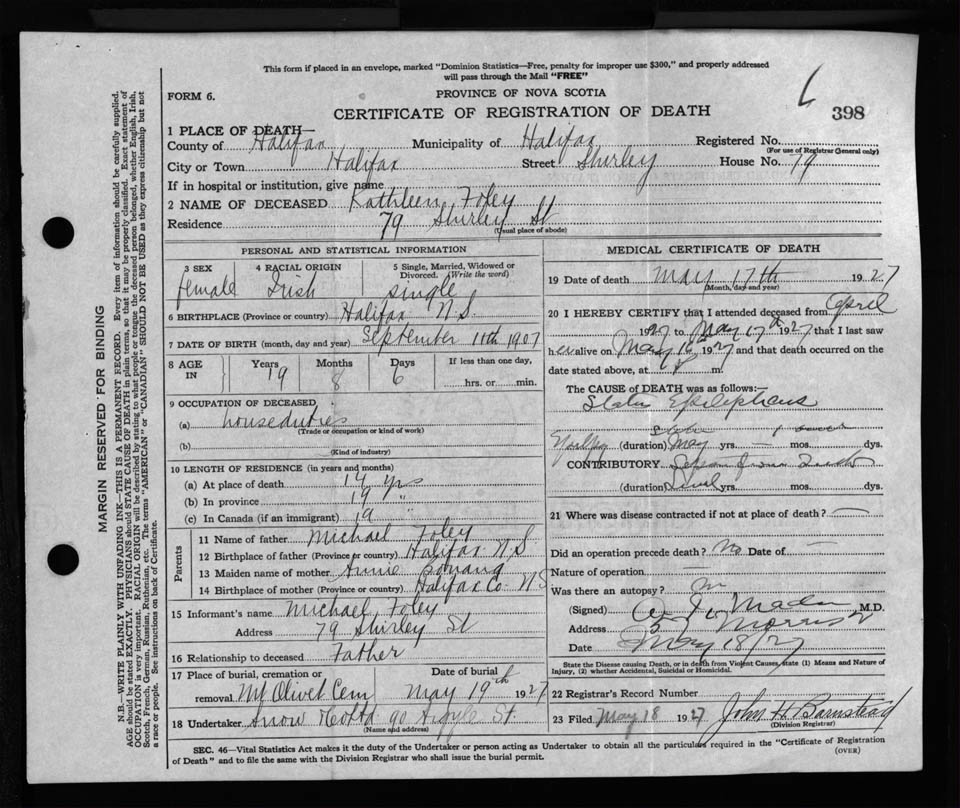 This form if placed in an envelope, marked "Dominion Statistics—Free, penalty for improper use $300," and properly addressed
will pass through the Mail "FREE"
FORM 6.
PROVINCE OF NOVA SCOTIA
CERTIFICATE OF REGISTRATION OF DEATH
398
1 PLACE OF DEATH—
County of Halifax Municipality of Halifax Registered No.
(For use of Registrar General only)
City or Town Halifax Street Shirley House No. 79
If in hospital or institution, give name
2 NAME OF DECEASED Kathleen Foley
Residence 79 Shirley St
(Usual place of abode)
PERSONAL AND STATISTICAL INFORMATION
3 SEX female
4 RACIAL ORIGIN Irish
5 Single, Married, Widowed or Divorced. (Write the word) single
6 BIRTHPLACE (Province or country) Halifax N.S.
7 DATE OF BIRTH (month, day and year) September 11th 1907
8 AGE IN Years 19 Months 8 Days 6 If less than one day, hrs. or min.
9 OCCUPATION OF DECEASED
(a) houseduties
(Trade or occupation or kind of work)
(b)
(Kind of industry)
10 LENGTH OF RESIDENCE (in years and months)
(a) At place of death 19 yrs
(b) In province 19 "
(c) In Canada (if an immigrant) 19 "
Parents
11 Name of father Michael Foley
12 Birthplace of father (Province or country) Halifax N.S
13 Maiden name of mother Annie
14 Birthplace of mother (Province or country) Halifax Co. N.S
15 Informant's name Michael Foley
Address 79 Shirley St
16 Relationship to deceased Father
17 Place of burial, cremation or removal Mt Olivet Cem Date of burial May 19th 1927
18 Undertaker Snow & Co Ltd 90 Argyle St.
(Name and address)
MEDICAL CERTIFICATE OF DEATH
19 Date of death May 17th 1927
(Month, day and year)
20 I HEREBY CERTIFY that I attended deceased from April
1927 to May 17th 1927 that I last saw
her alive on May 16th 1927 and that death occurred on the
date stated above, at m.
The CAUSE of DEATH was as follows:
Status Epilepticus
(duration) yrs. mos. dys.
CONTRIBUTORY
(duration) yrs. mos. dys.
21 Where was disease contracted if not at place of death? —
Did an operation precede death? No Date of —
Nature of operation —
Was there an autopsy?
(Signed) M.D.
Address Morris St
Date May 18/27
State the Disease causing Death, or in death from Violent Causes, state (1) Means and Nature of
Injury, (2) whether Accidental, Suicidal or Homicidal.
22 Registrar's Record Number
23 Filed May 18 1927 John H Barnstead
(Division Registrar)
SEC. 46—Vital Statistics Act makes it the duty of the Undertaker or person acting as Undertaker to obtain all the particulars required in the "Certificate of Registration
of Death" and to file the same with the Division Registrar who shall issue the burial permit.
(OVER)
MARGIN RESERVED FOR BINDING
N.B.—WRITE PLAINLY WITH UNFADING INK—THIS IS A PERMANENT RECORD. Every item of information should be carefully supplied.
AGE should be stated EXACTLY. PHYSICIANS should STATE CAUSE OF DEATH in plain terms, so that it may be properly classified. Exact statement of
OCCUPATION is very important. RACIAL ORIGIN will be described by stating to what people or tongue the deceased person belonged, whether English, Irish,
Scotch, French, German, Russian, Ruthenian, etc. The terms "AMERICAN" or "CANADIAN" SHOULD NOT BE USED as they express citizenship but not
a race or people. See instructions on back of Certificate.